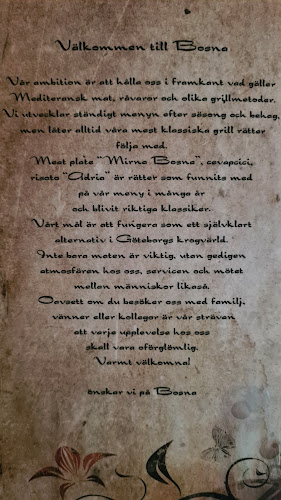 Välkommen till Bosna
Vår ambition är att hålla oss i framkant vad gäller
Mediteransk mat, råvaror och olika grillmetoder.
Vi utvecklar ständigt menyn efter säsong och behag,
men låter alltid våra mest klassiska grill rätter
följa med.
Meat plate "Mirna Bosna", cevapcici,
risoto "Adria" är rätter som funnits med
på vår meny i många år
och blivit riktiga klassiker.
Vårt mål är att fungera som ett självklart
alternativ i Göteborgs krogvärld.
Inte bara maten är viktig, utan gedigen
atmosfären hos oss, servicen och mötet
mellan människor likaså.
Oavsett om du besöker oss med familj,
vänner eller kollegor är vår strävan
att varje upplevelse hos oss
skall vara oförglömlig.
Varmt välkomna!
önskar vi på Bosna